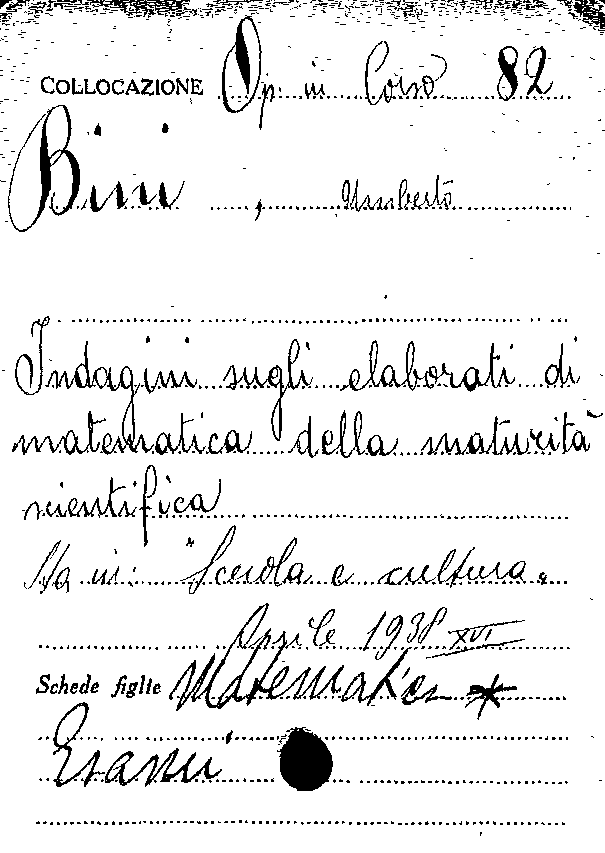 COLLOCAZIONE Op. in Corso 82
Bini , Umberto
Indagini sugli elaborati di
matematica della maturità
scientifica
Sta in: "Scuola e cultura"
Aprile 1938 XVI
Schede figlie Matematica *
Esami